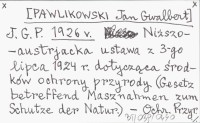 [PAWLIKOWSKI Jan Gwalbert]
J. G. P. 1926 r. Niższo-
-austrjacka ustawa z 3-go
lipca 1924 r. dotycząca środ-
ków ochrony przyrody (Gesetz
betreffend Masznahmen zum
Schutze der Natur). – Ochr. Przyr.